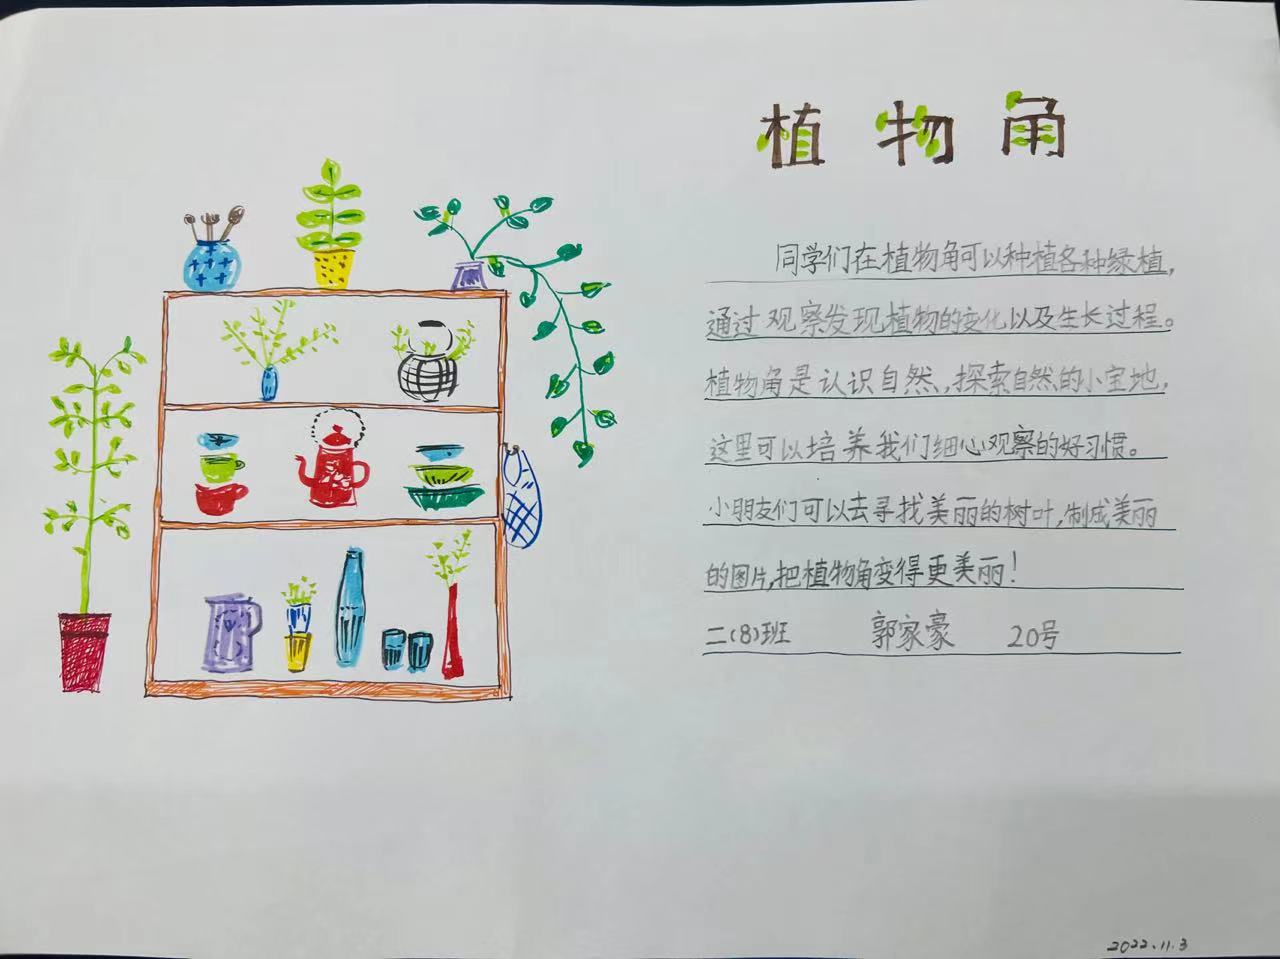 植物角
同学们在植物角可以种植各种绿植,
通过观察发现植物的变化以及生长过程。
植物角是认识自然,探索自然的小宝地,
这里可以培养我们细心观察的好习惯。
小朋友们可以去寻找美丽的树叶,制成美丽
的图片,把植物角变得更美丽!
二(8)班 郭家豪 20号
2022.11.3